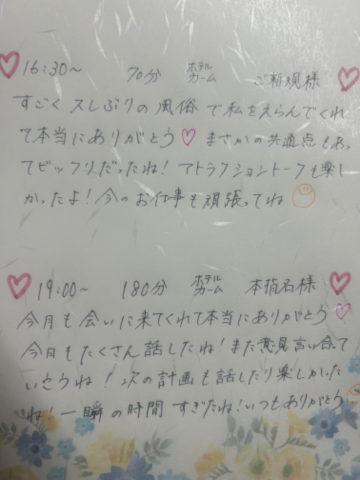 ♡16:30~ 70分 ホテルカーム ご新規様
すごく久しぶりの風俗で私をえらんでくれ
て本当にありがとう♡ まさかの共通点もあっ
てビックリだったね! アトラクショントークも楽し
かったよ! 今のお仕事も頑張ってね
♡19:00~ 180分 ホテルカーム 本指名様
今月も会いに来てくれて本当にありがとう♡
今月もたくさん話したね! また意見言い合て
いこうね! 次の計画も話したり楽しかった
ね! 一瞬の時間すぎたね! いつもありがとう